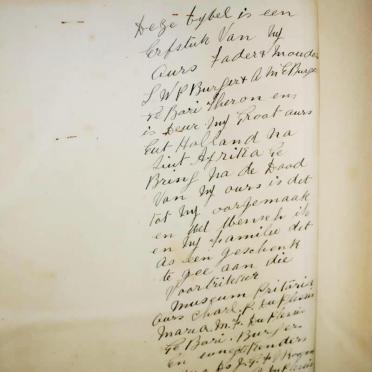 Deze bybel is een
Erfstuk Van My
Ours Vader & Moeder
S W P Burger & A M E Burger
ge Bore Theron en
is Deur My Groot ours
Uut Holland Na
Suit Afrika ge
Bring Na de Dood
Van My ours is dit
tot My oorgemaak
en dit Wensch ik
en My familie dit
As een geschenk
te gee aan die
Voortrekker
Museum Pritoria
ours Charl P. Du Plessis
Maria M. F. Du Plessis
ge Bore. Burger
En